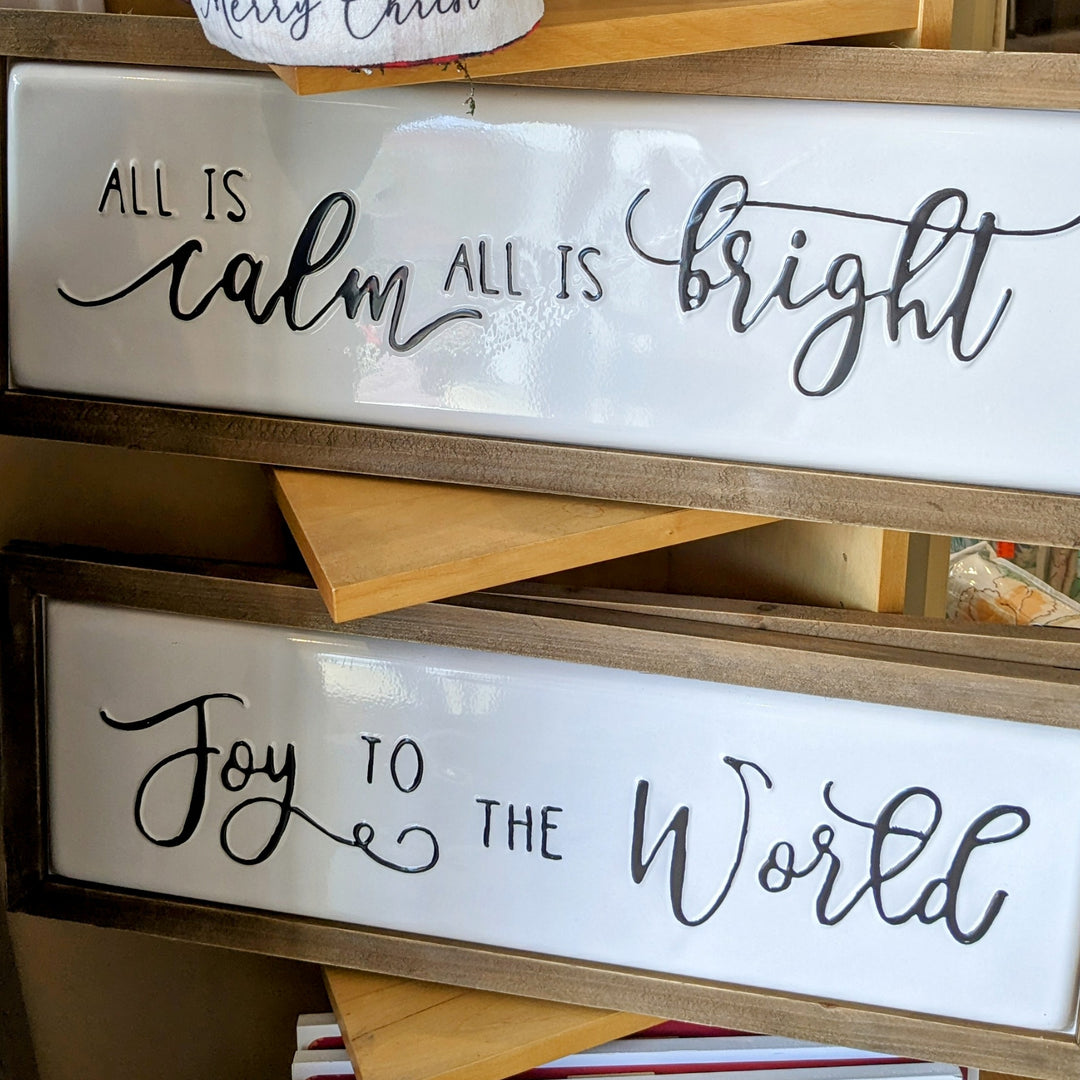 Merry Christ
ALL IS
calm ALL IS bright
Joy TO
THE World